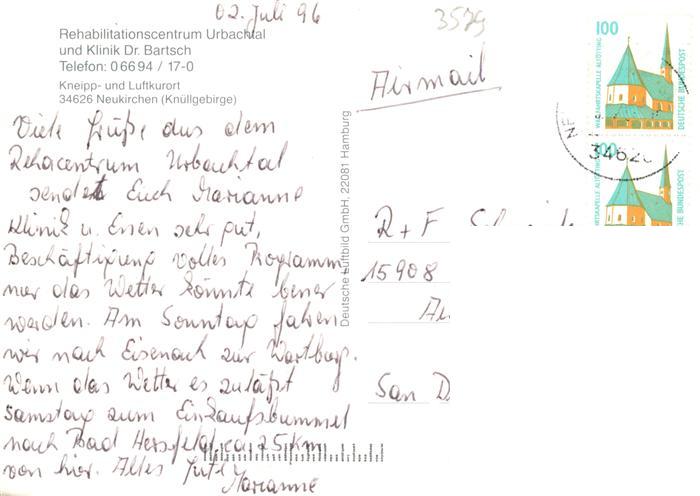 02. Juli 96
3579
Rehabilitationscentrum Urbachtal
und Klinik Dr. Bartsch
Telefon: 0 66 94 / 17-0
Kneipp- und Luftkurort
34626 Neukirchen (Knüllgebirge)
Airmail
100
WALLFAHRTSKAPELLE ALTÖTTING
DEUTSCHE BUNDESPOST
34626
100
Viele Grüße aus dem
Rehacentrum Urbachtal
sendet Euch Marianne
Klinik u. Essen sehr gut,
Beschäftigung volles Programm
nur das Wetter könnte besser
werden. Am Sonntag fahren
wir nach Eisenach zur Wartburg.
Wenn das Wetter es zuläßt
Samstag zum Einkaufsbummel
nach Bad Hersfeld, ca 25 km
von hier. Alles Gute
Marianne
Deutsche Luftbild GmbH, 22081 Hamburg
R + F
15908
San D